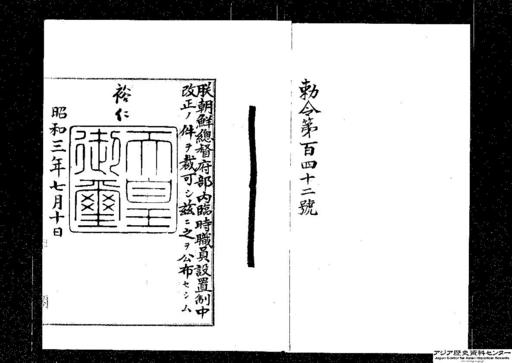 勅令第百四十二號
朕朝鮮總督府部內臨時職員設置制中
改正ノ件ヲ裁可シ茲ニ之ヲ公布セシム
裕仁
天皇
御璽
昭和三年七月十日
アジア歴史資料センター
Japan Center for Asian Historical Records